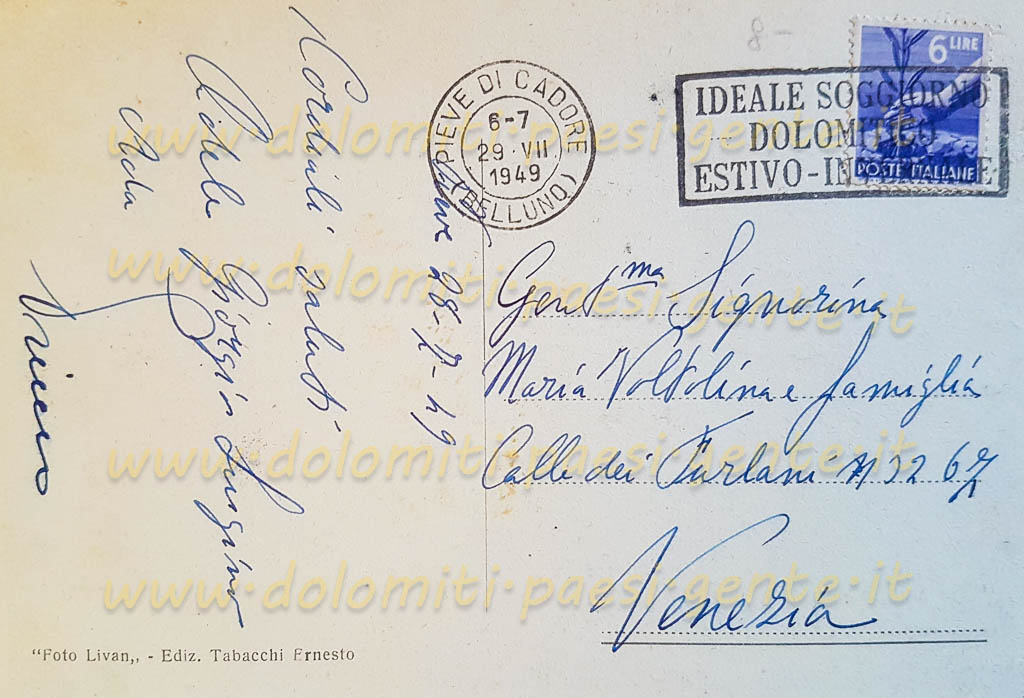 8-
PIEVE DI CADORE
(BELLUNO)
6-7
29·VII
1949
6 LIRE
POSTE ITALIANE
IDEALE SOGGIORNO
DOLOMITICO
ESTIVO-IN
Pieve 28-7-49
Cordiali saluti
Giorgio Luigino
Ada
Gent.ma Signorina
Maria Voltolina e famiglia
Calle dei Furlani N 3267
Venezia
"Foto Livan,, - Ediz. Tabacchi Ernesto
www·dolomiti·paesi·gente·it
www·dolomiti·paesi·gente·it
www·dolomiti·paesi·gente·it
www·dolomiti·paesi·gente·it